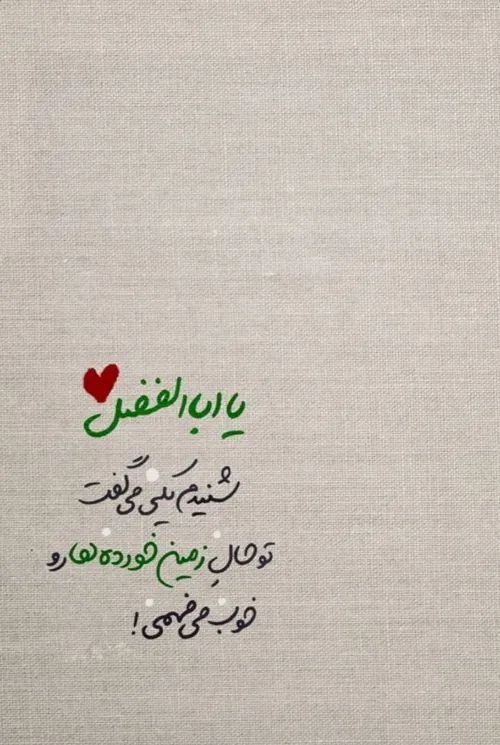 یا اباالفضل
شنیدم یکی می‌گفت
تو حالِ زمین خورده ها رو
خوب می‌فهمی!